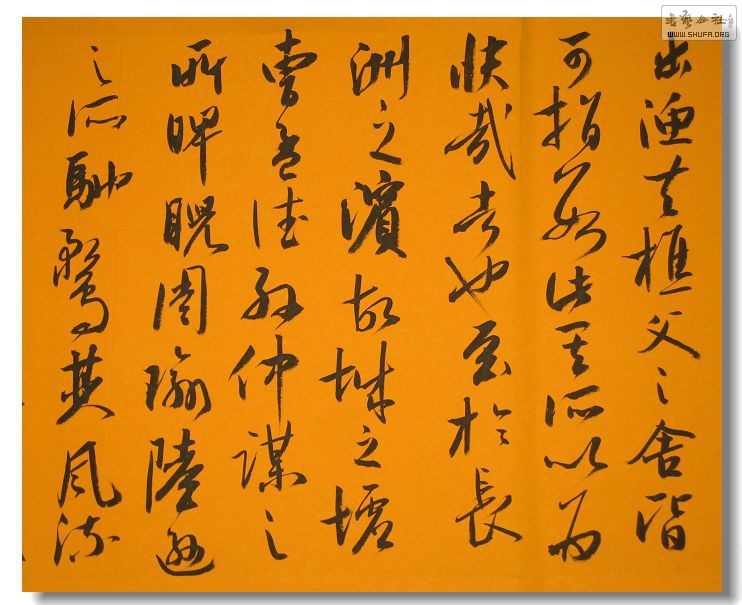 出漁夫樵父之舍皆
可指數此其所以為
快哉者也至於長
洲之濱故城之墟
曹孟德孫仲謀之
所睥睨周瑜陸遜
之所馳騖其風流
書藝公社
WWW.SHUFA.ORG